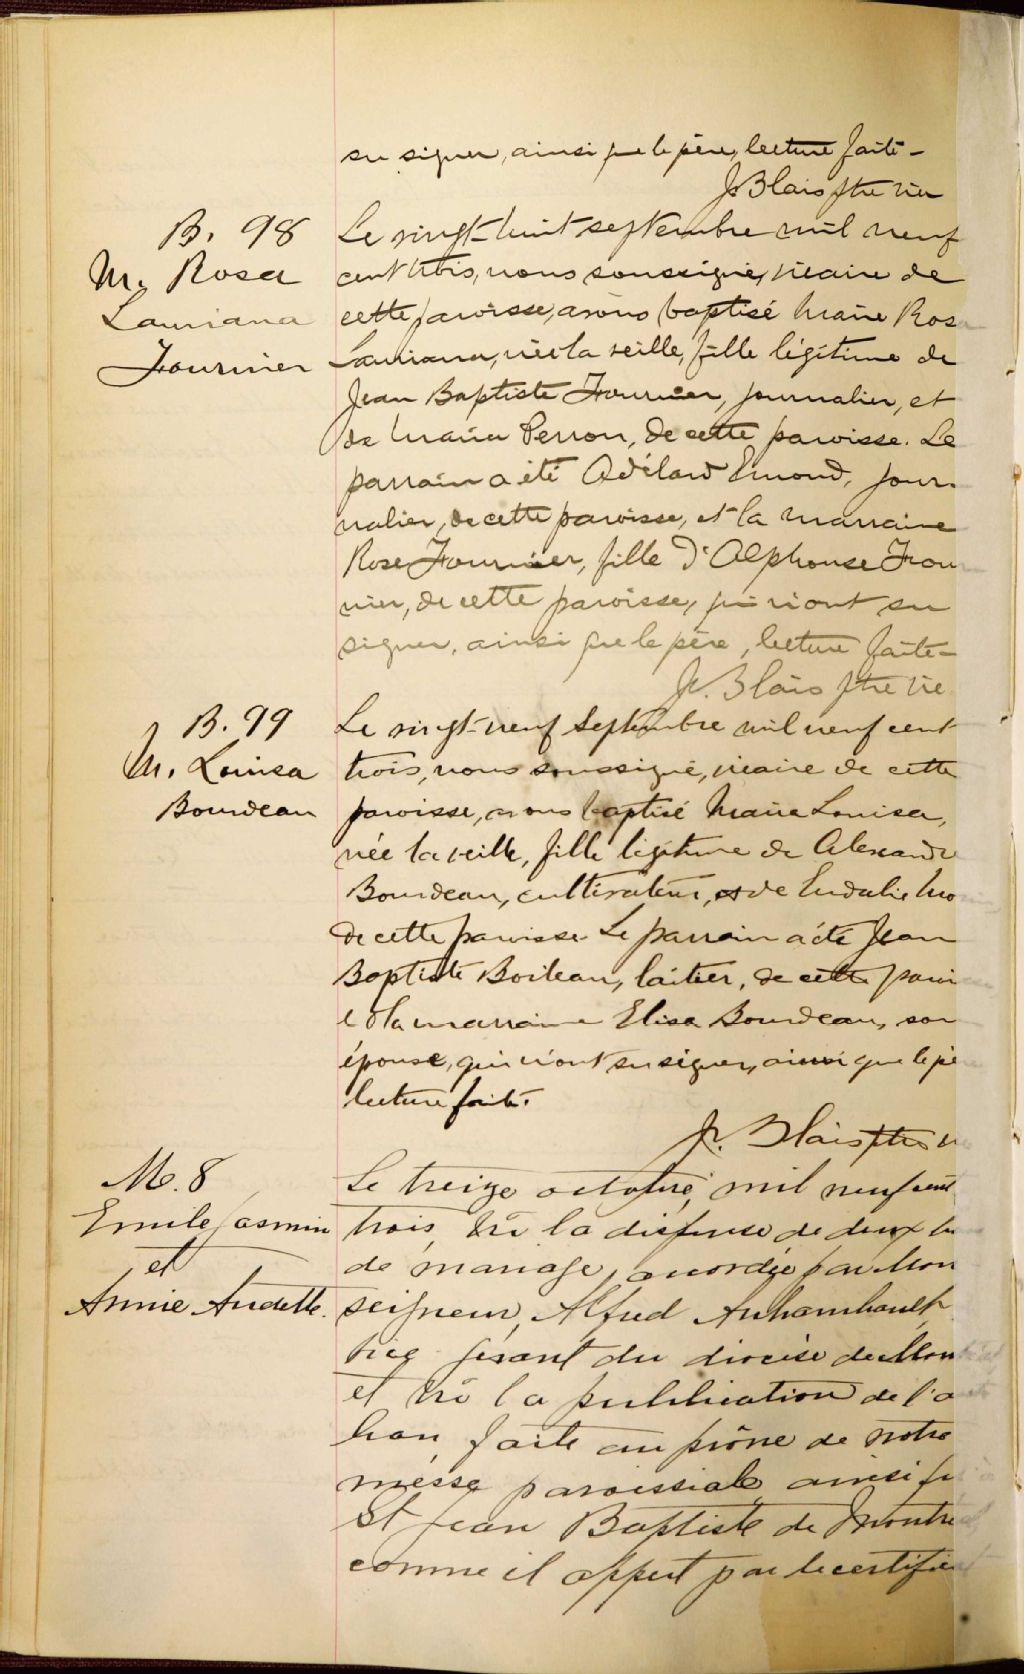 su signer, ainsi que le père, lecture faite -
J. Blais ptre vic
B. 98
M. Rosa
Lauriana
Fournier
Le vingt-huit septembre mil neuf
cent trois, nous soussigné, vicaire de
cette paroisse, avons baptisé Marie Rosa
Lauriana, née la veille, fille légitime de
Jean Baptiste Fournier, journalier, et
de Maria Perron, de cette paroisse. Le
parrain a été Adélard Emond, jour-
nalier, de cette paroisse, et la marraine
Rose Fournier, fille d'Alphonse Four
nier, de cette paroisse, qui n'ont su
signer, ainsi que le père, lecture faite -
J. Blais ptre vic
B. 99
M. Louisa
Bourdeau
Le vingt-neuf septembre mil neuf cent
trois, nous soussigné, vicaire de cette
paroisse, avons baptisé Maria Louisa,
née la veille, fille légitime de Alexandre
Bourdeau, cultivateur, et de Eudalie
de cette paroisse. Le parrain a été Jean
Baptiste Boileau, laitier, de cette parois
et la marraine Elisa Bourdeau, son
épouse, qui n'ont su signer, ainsi que le pè
lecture faite.
J. Blais ptre v
M. 8
Emile Jasmin
et
Annie Audette.
Le treize octobre, mil neuf cent
trois, vû la dispense de deux
de mariage, accordée par Mon
seigneur, Alfred Archambault,
vice gérant du diocèse de Mon
et vû la publication de l'a
ban faite au prône de notre
messe paroissiale ainsi qu
St Jean Baptiste de Montré
comme il appert par le certificat